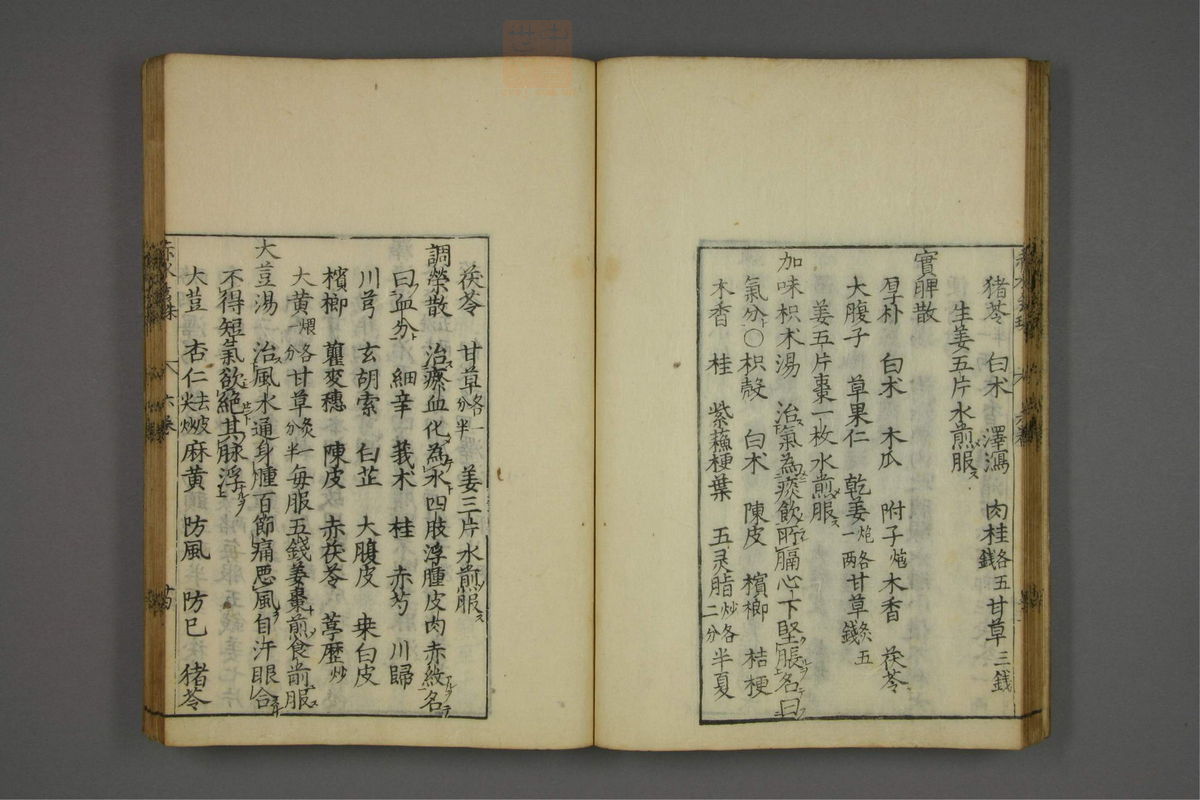 猪苓 白朮 澤瀉 肉桂各五錢 甘草三錢
生姜五片水煎服ス
實脾散
厚朴 白朮 木瓜 附子炮 木香 茯苓
大腹子 草果仁 乾姜炮各一两 甘草炙五錢
姜五片棗一枚水煎服ス
加味枳朮湯 治氣為痰飲所膈心下堅脹名曰
氣分〇枳殻 白朮 陳皮 檳榔 桔梗
木香 桂 紫蘓梗葉 五灵脂炒各二分 半夏
茯苓 甘草各一分半 姜三片水煎服ス
調榮散 治瘀血化為水四肢浮腫皮肉赤紋名
曰血分 細辛 莪朮 桂 赤芍 川歸
川芎 玄胡索 白芷 大腹皮 桒白皮
檳榔 瞿麥穗 陳皮 赤茯苓 葶歷炒
大黄煨各一分 甘草炙一分半 每服五錢姜棗煎食前服ス
大荳湯 治風水通身腫百節痛惡風自汗眼合
不得短氣欲絕其脉浮
大荳 杏仁去皮尖炒 麻黄 防風 防已 猪苓
六卷